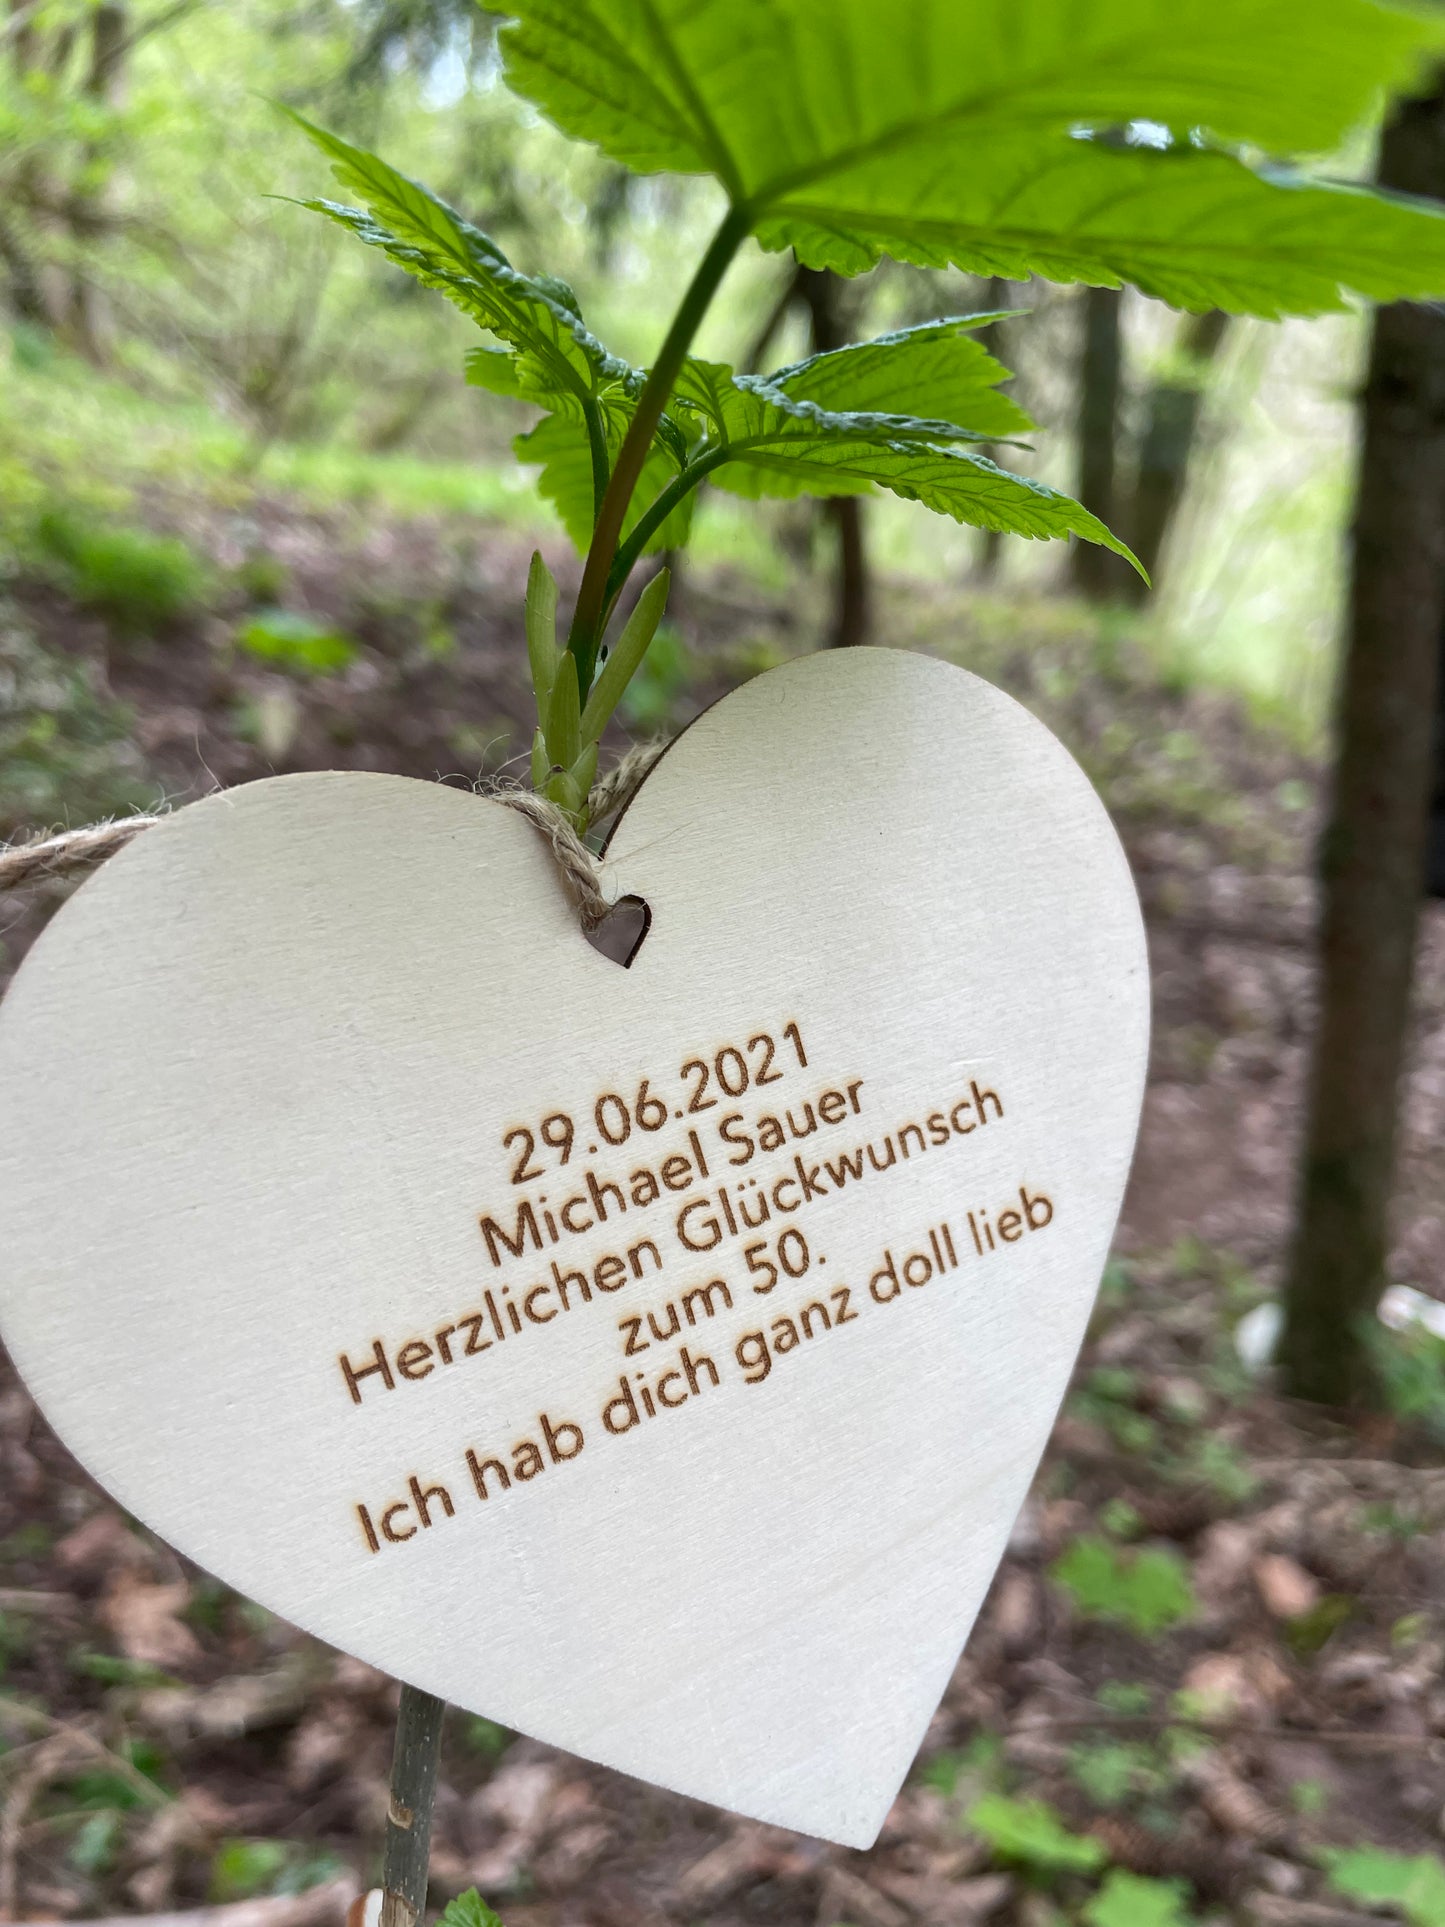 29.06.2021
Michael Sauer
Herzlichen Glückwunsch
zum 50.
Ich hab dich ganz doll lieb